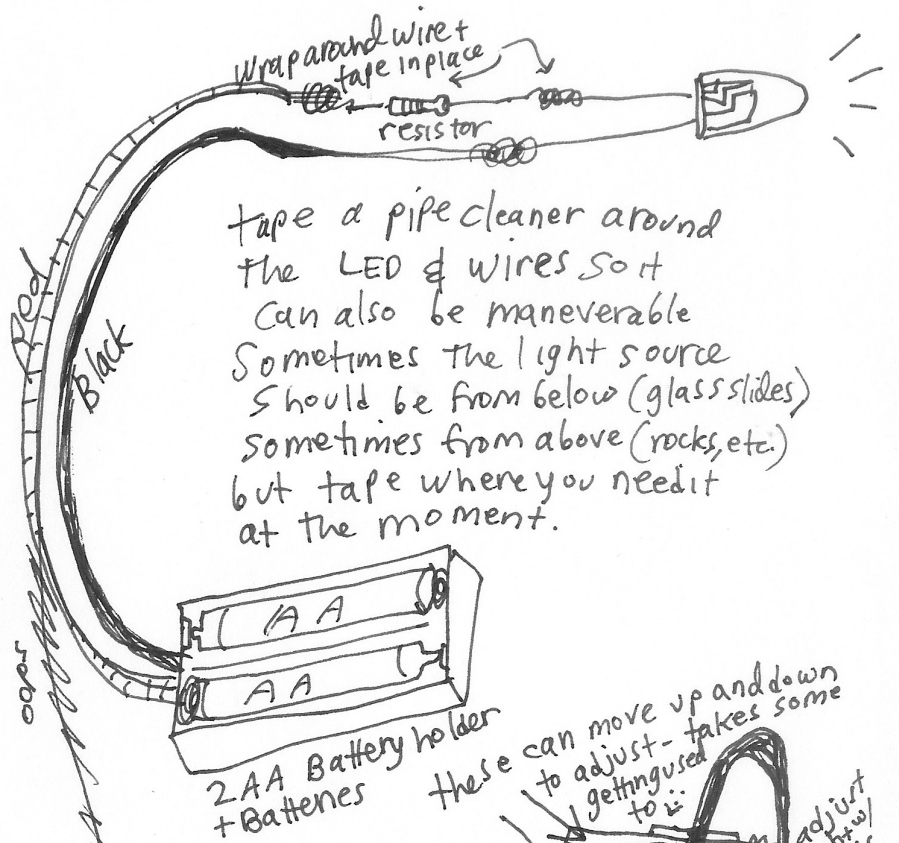 wrap around wire +
tape in place
resistor
tape a pipe cleaner around
the LED & wires so it
can also be maneverable
Sometimes the light source
should be from below (glass slides)
sometimes from above (rocks, etc.)
but tape where you need it
at the moment.
Red
Black
oops
AA
AA
2 AA Battery holder
+ Batteries
these can move up and down
to adjust - takes some
getting used
to :
adjust